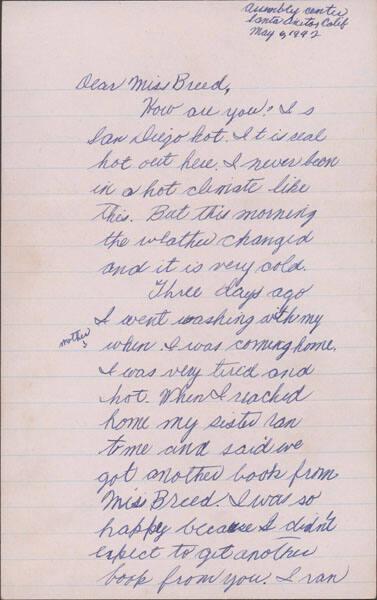 Assembly center
Santa Anita, Calif
May 6, 1942
Dear Miss Breed,
How are you? Is
San Diego hot. It is real
hot out here. I never been
in a hot climate like
this. But this morning
the weather changed
and it is very cold.
Three days ago
I went washing with my
mother
when I was coming home.
I was very tired and
hot. When I reached
home my sister ran
to me and said we
got another book from
Miss Breed. I was so
happy because I didn't
expect to get another
book from you. I ran